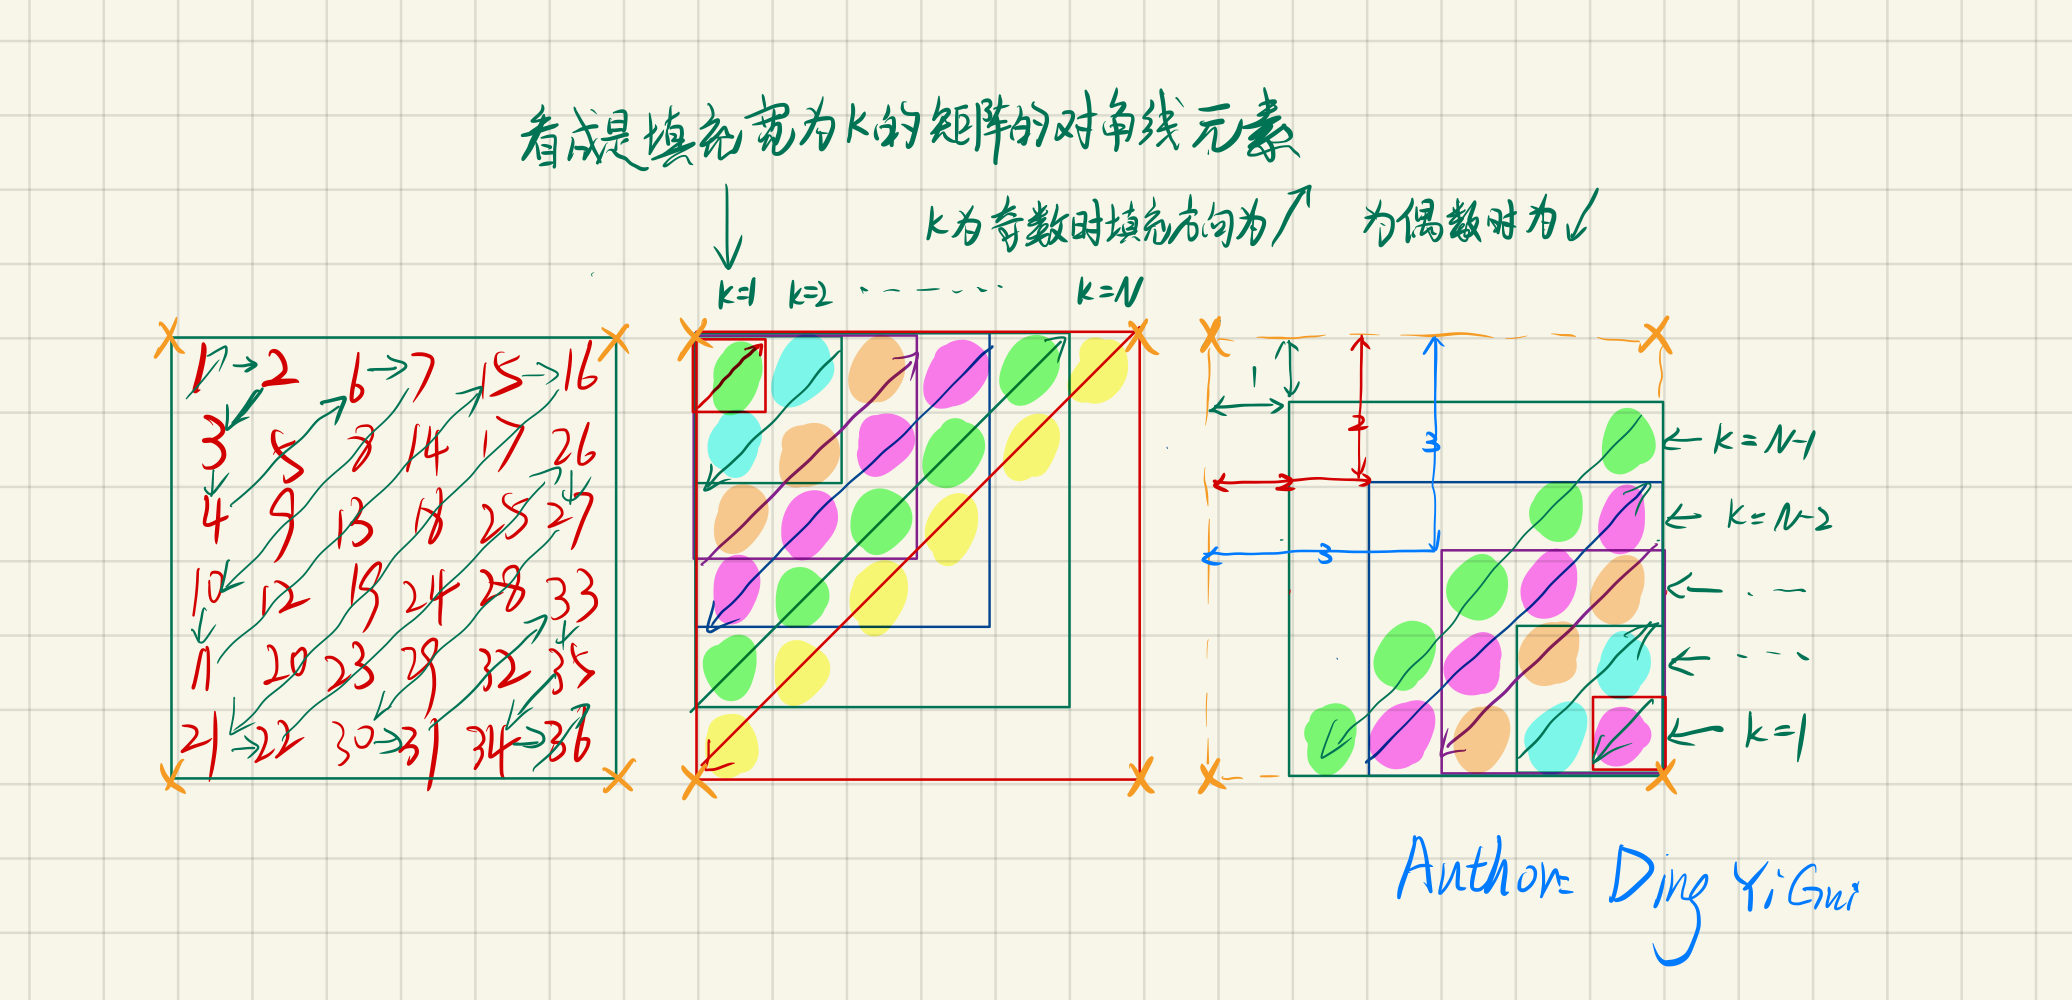 看成是填充宽为k的矩阵的对角线元素
k为奇数时填充方向为↗ 为偶数时为↙
k=1 k=2 ······ k=N
1 2 6 7 15 16
3 5 8 14 17 26
4 9 13 18 25 27
10 12 19 24 28 33
11 20 23 29 32 35
21 22 30 31 34 36
1
2
3
2
3
k=N-1
k=N-2
· --
· ---
k=1
Author: Ding YiGui